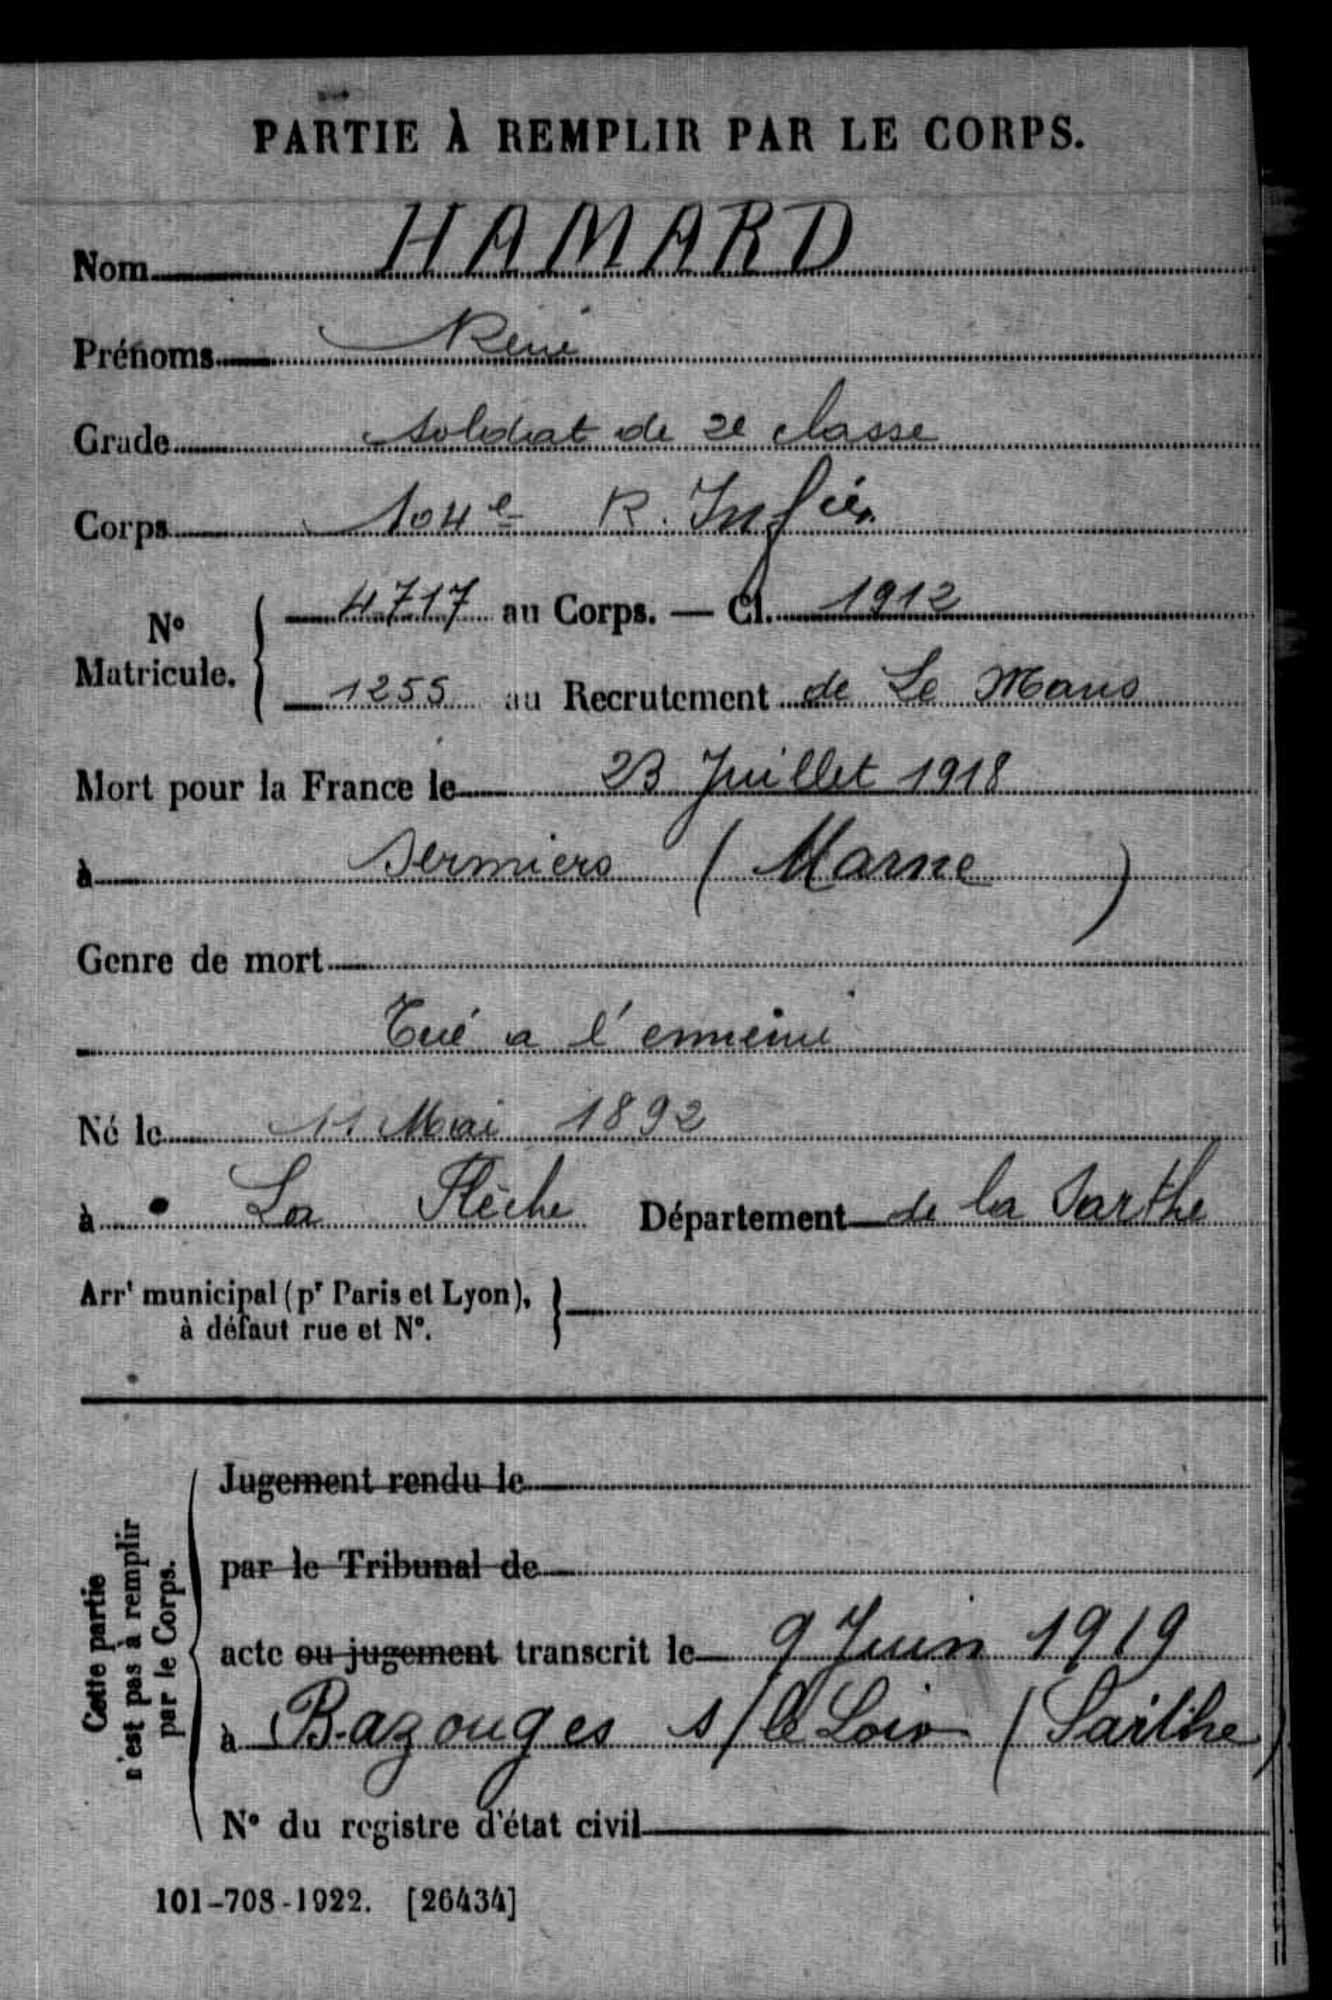 PARTIE À REMPLIR PAR LE CORPS.
Nom HAMARD
Prénoms René
Grade soldat de 2e classe
Corps 104e R. Infie
N° Matricule. 4717 au Corps. — Cl. 1912
1255 au Recrutement de Le Mans
Mort pour la France le 23 Juillet 1918
à Sermiers (Marne)
Genre de mort
Tué a l'ennemi
Né le 11 Mai 1892
à La Flèche Département de la Sarthe
Arrt municipal (pr Paris et Lyon),
à défaut rue et N°.
Cette partie
n'est pas à remplir
par le Corps.
Jugement rendu le
par le Tribunal de
acte ou jugement transcrit le 9 Juin 1919
à Bazouges s/le Loir (Sarthe)
N° du registre d'état civil
101-708-1922. [26434]